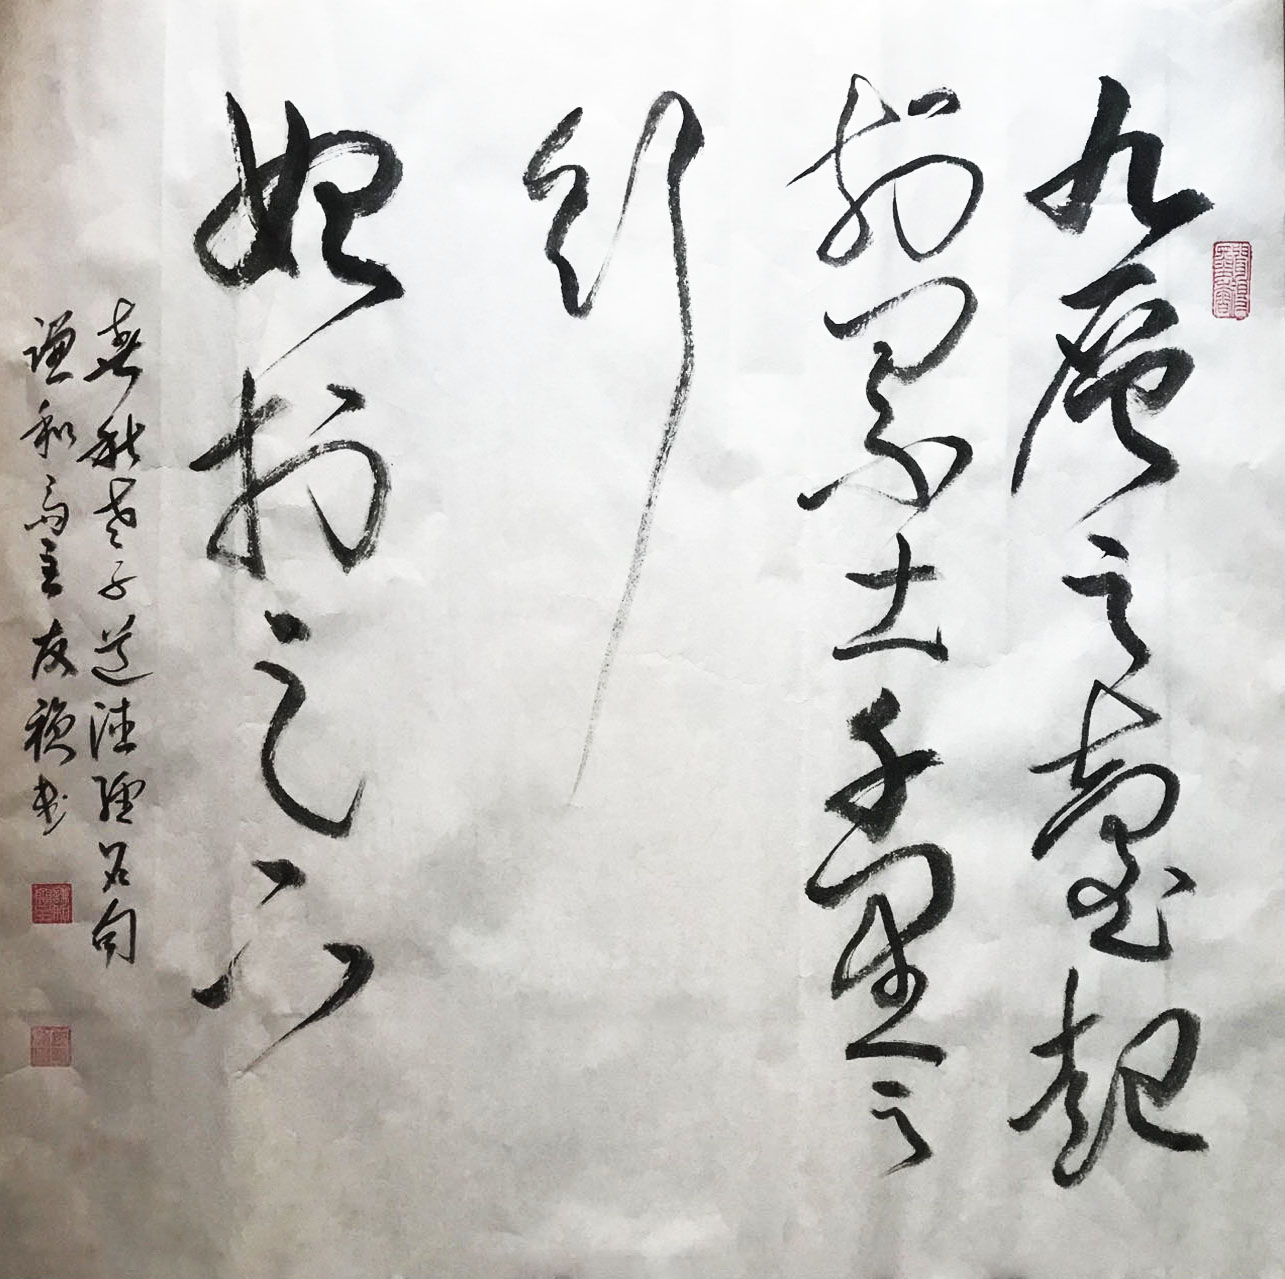 九層之臺起
於累土千里之
行
始於足下
春秋老子道德經名句
謙和齋主友禎書